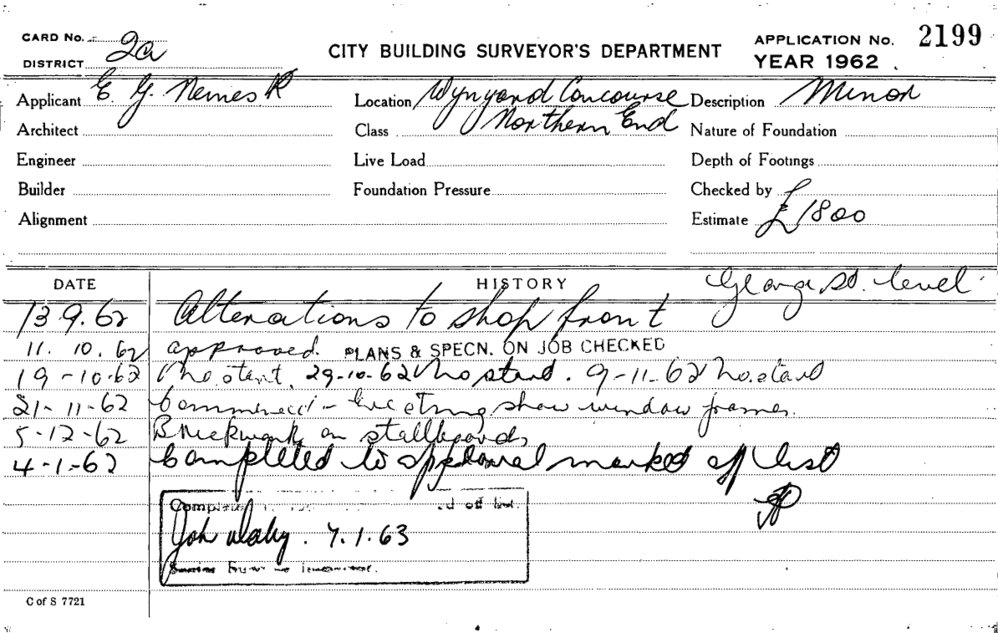 CARD No. 2a
DISTRICT
CITY BUILDING SURVEYOR'S DEPARTMENT
APPLICATION No. 2199
YEAR 1962
Applicant E. G. Nemes
Location Wynyard Concourse
Description Minor
Architect
Class Northern End
Nature of Foundation
Engineer
Live Load
Depth of Footings
Builder
Foundation Pressure
Checked by
Alignment
Estimate £1800
DATE
HISTORY
George St. level
13.9.62 Alterations to shop front
11. 10. 62 approved. PLANS & SPECN. ON JOB CHECKED
19-10-62 No start. 29-10-62 No start. 9-11-62 No. start
21-11-62 Commenced - Erecting show window frames.
5-12-62 Brickwork on stallboards
4-1-62 Completed to approval marked off list
off list
7.1.63
C of S 7721